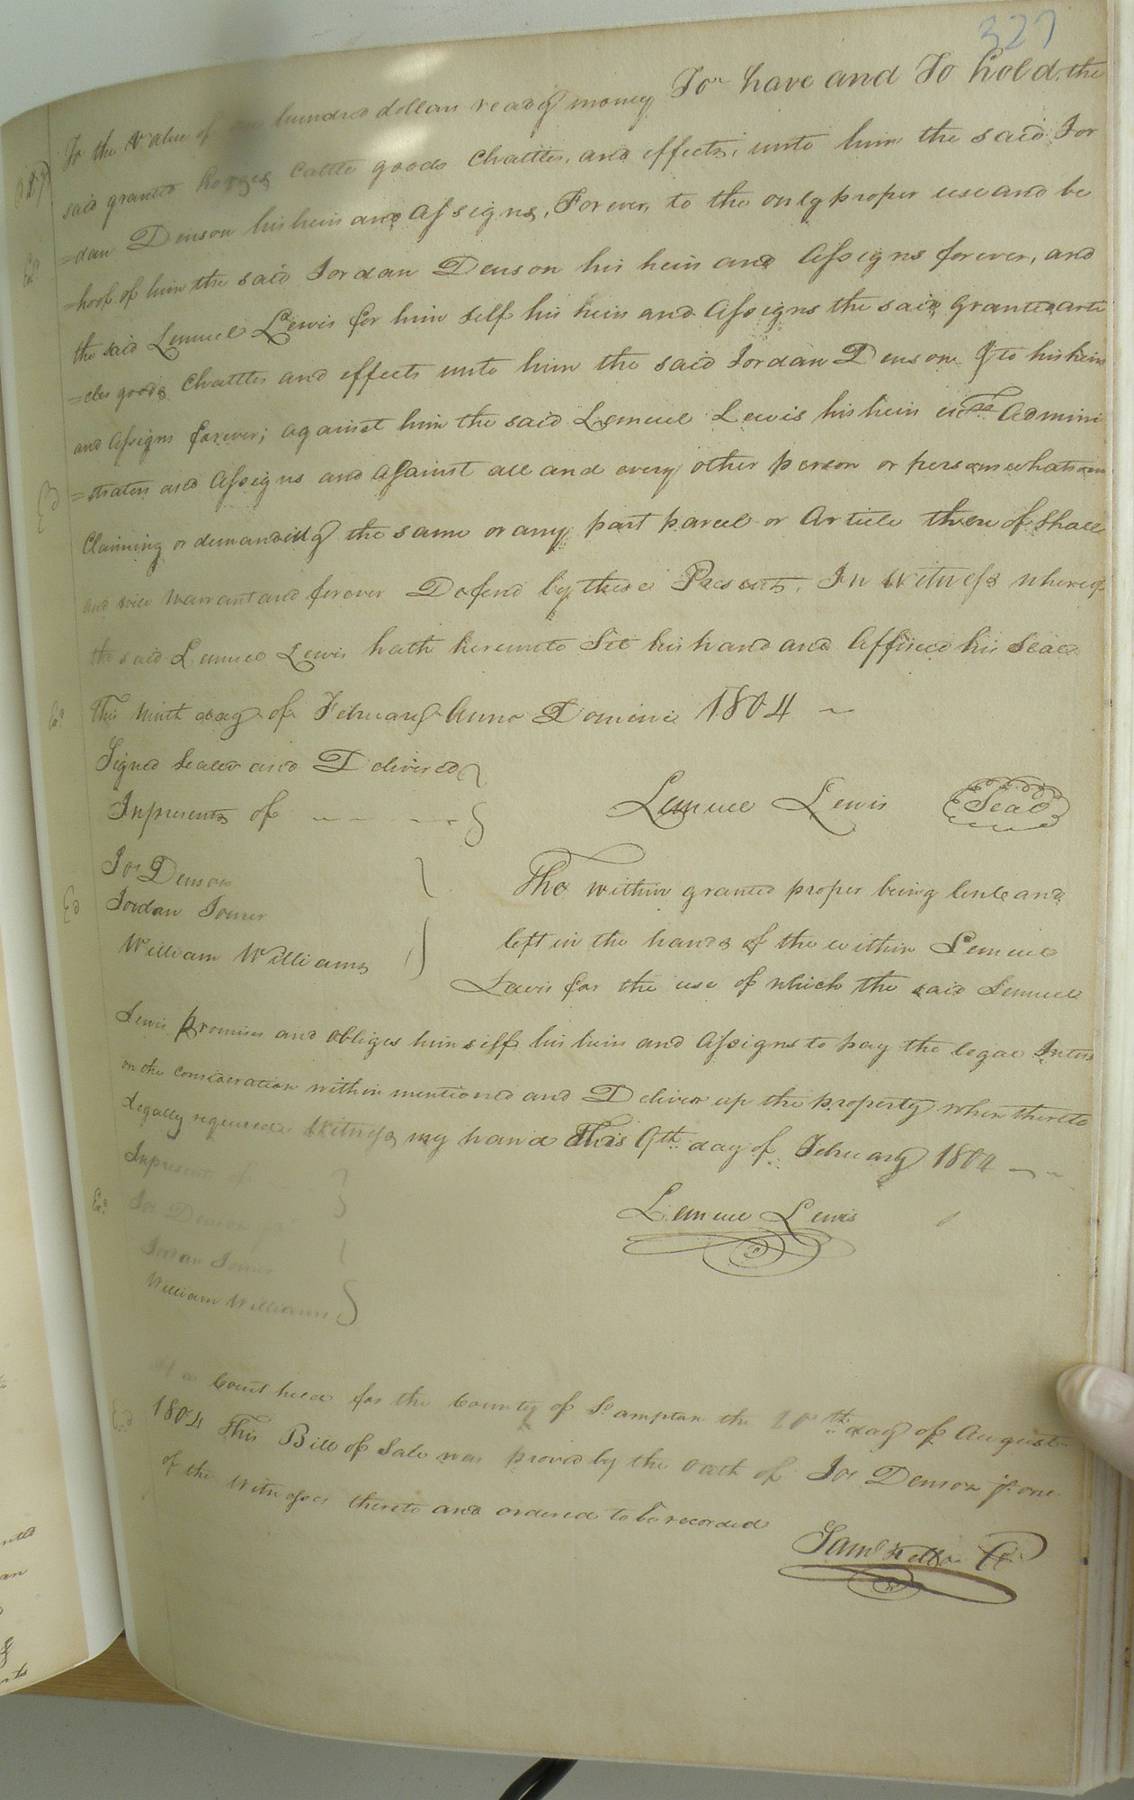 327
To the Value of hundred dollars ready money To have and To hold the
said granted horses cattle goods Chattles, and effects, unto him the said Jor
=dan Denson his heirs and Assigns, Forever, to the only proper use and be
=hoof of him the said Jordan Denson his heirs and Assigns forever, and
the said Lemuel Lewis for him self his heirs and Assigns the said granted arti
=cles goods Chattles and effects unto him the said Jordan Denson & to his heirs
and Assigns forever; against him the said Lemuel Lewis his heirs Admini
=strators and Assigns and against all and every other person or persons whatsoever
Claiming or demanding the same or any part parcel or Article there of Shall
and will warrant and forever Defend by these Presents. In Witness whereof
the said Lemuel Lewis hath hereunto Set his hand and Affixed his Seal
This ninth day of February Anno Domini 1804
Signed Sealed and Delivered
In presents of
Lemuel Lewis Seal
Jos Denson
Jordan Joiner
William Williams
The within granted proper being lent and
left in the hands of the within Lemuel
Lewis for the use of which the said Lemuel
Lewis promises and obliges him self his heirs and Assigns to pay the legal Inters
on the consideration within mentioned and Deliver up the property when thereto
Legally required. Witness my hand This 9th day of February 1804
In presents of
Lemuel Lewis
Jos Denson
Jordan Joiner
William Williams
At a Court held for the County of So ampton the 20th day of August
1804 This Bill of Sale was proved by the oath of Jos Denson one
of the Witnesses thereto and ordered to be recorded
Saml Kello